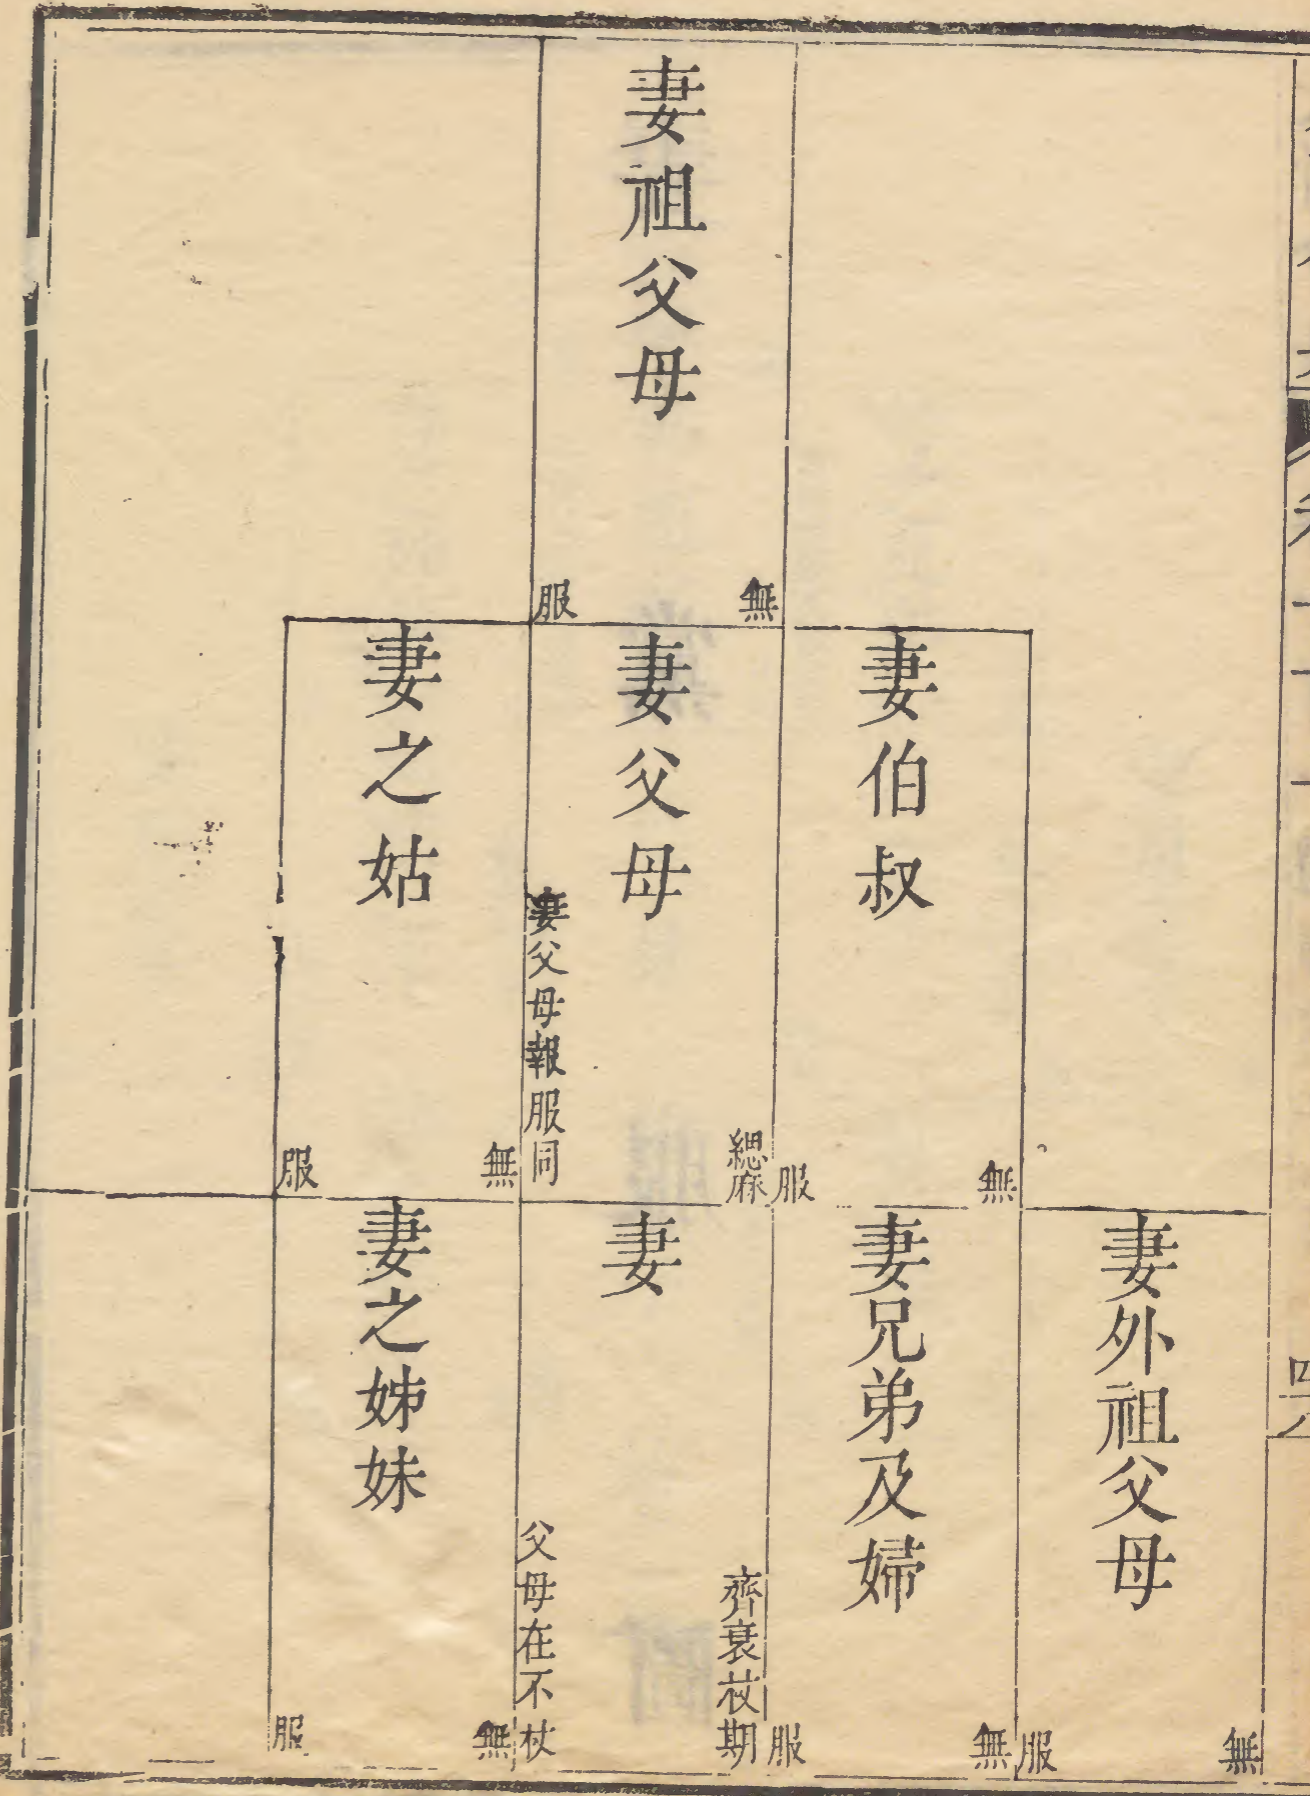 妻祖父母
無
服
妻伯叔
無
服
妻父母
緦麻
妻父母報服同
妻之姑
無
服
妻外祖父母
無
服
妻兄弟及婦
無
服
妻
齊衰杖期
父母在不杖
妻之姊妹
無
服